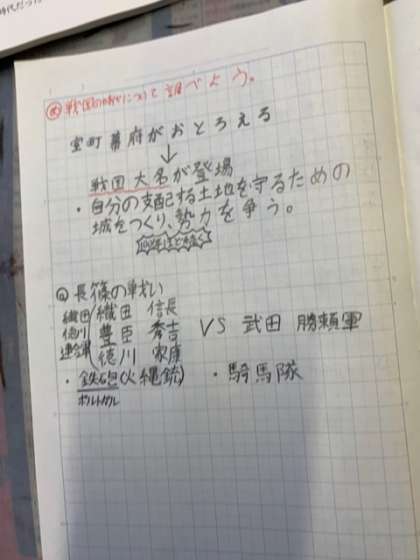 戦国の時代について調べよう。
室町幕府がおとろえる
↓
戦国大名が登場
・自分の支配する土地を守るための
城をつくり、勢力を争う。
長篠の戦い
織田 徳川 連合軍
織田 信長
豊臣 秀吉
徳川 家康
VS 武田 勝頼軍
・鉄砲(火縄銃) ・騎馬隊
ポルトガル